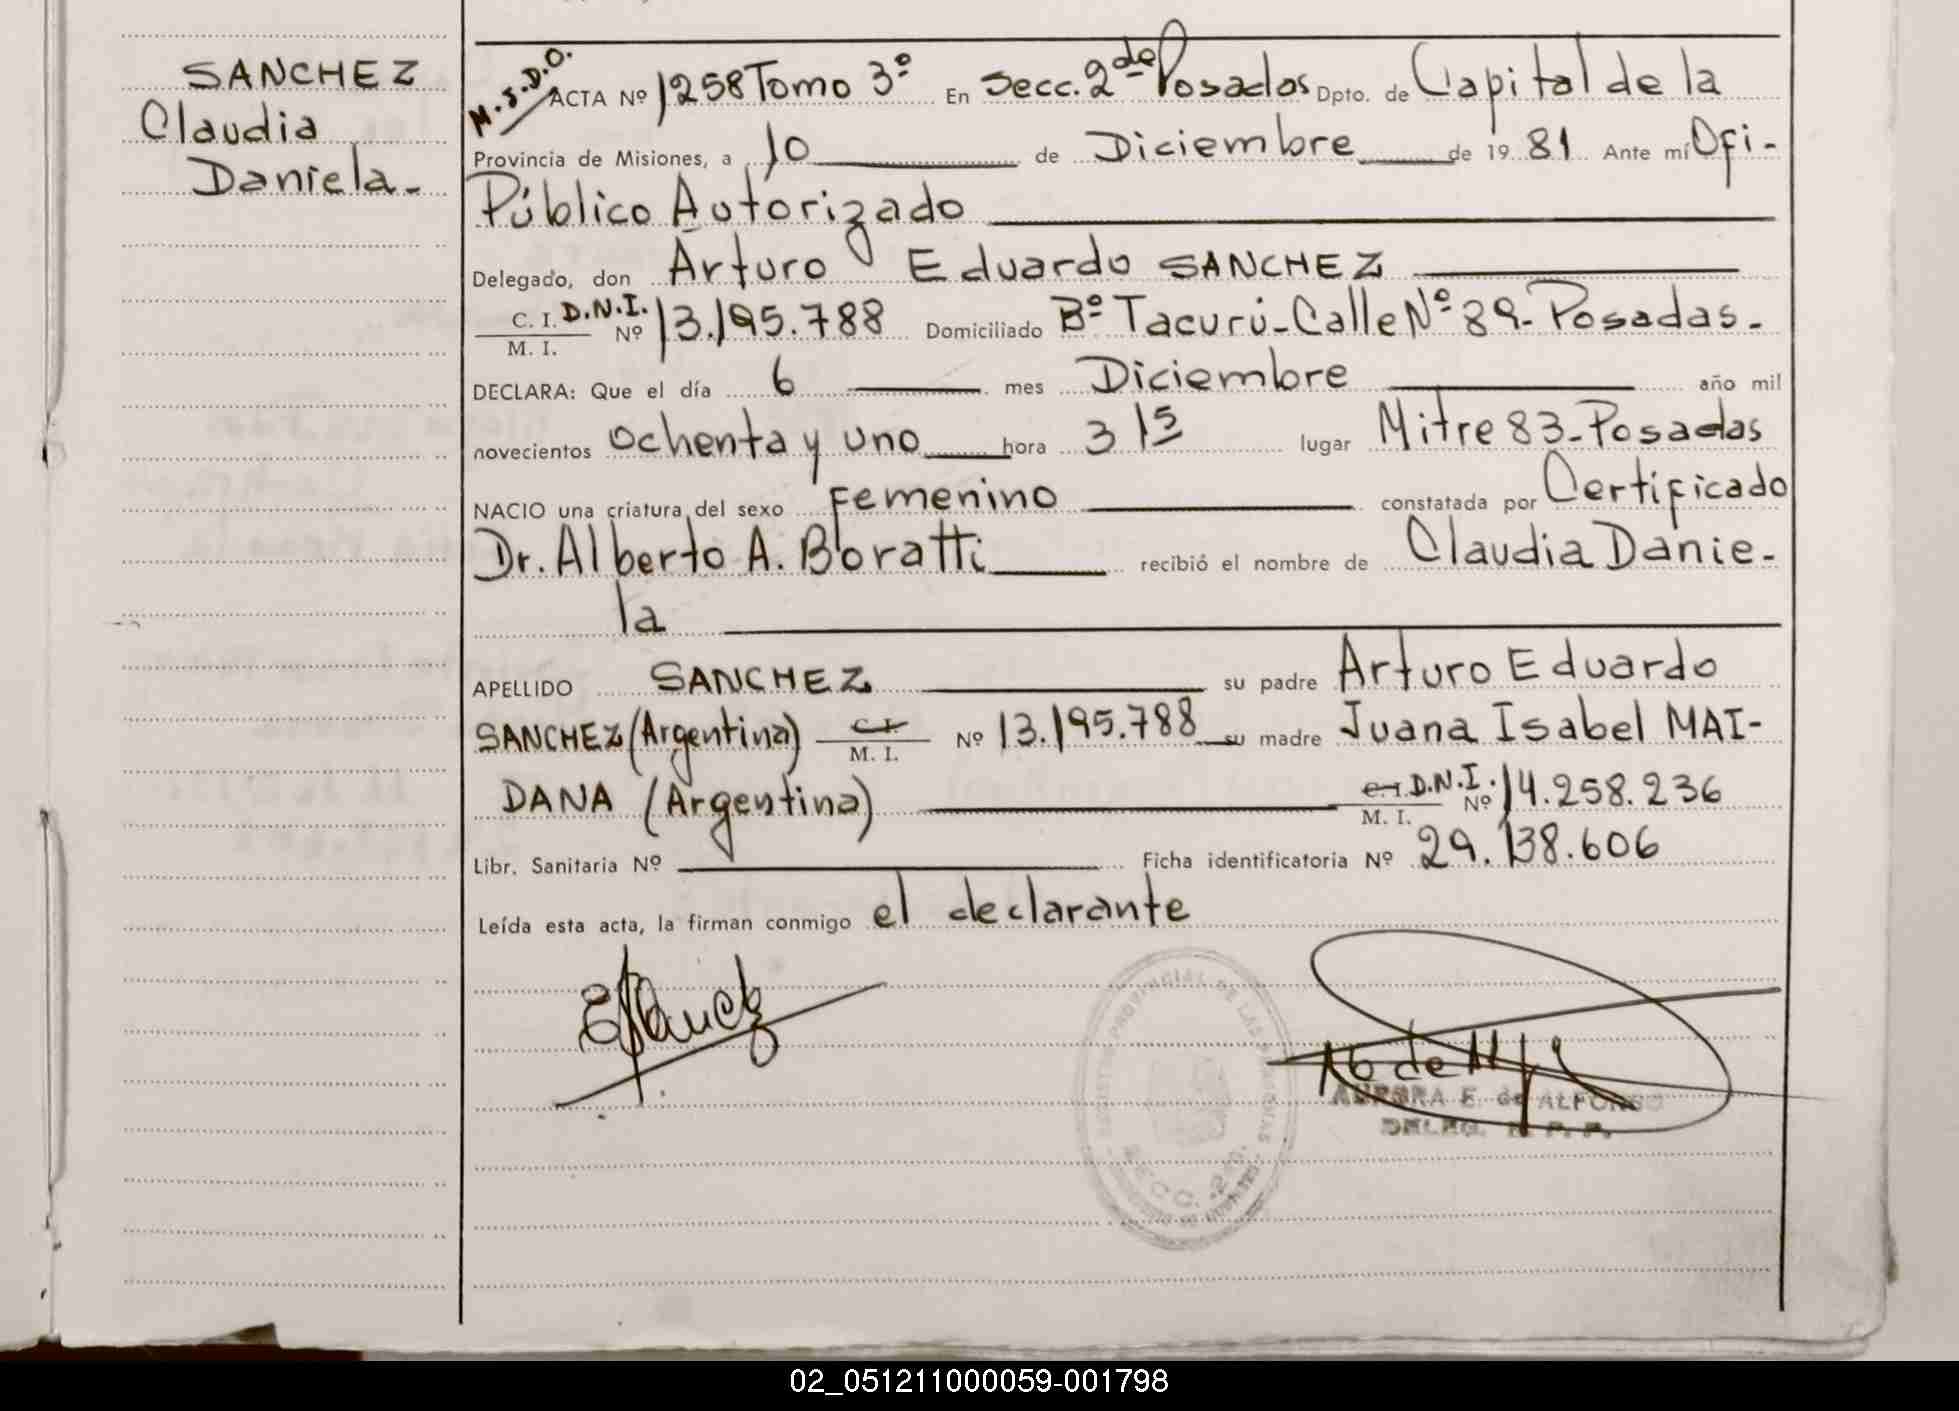 SANCHEZ
Claudia
Daniela-
M.S.D.O.
ACTA Nº 1258 Tomo 3º En Secc. 2da Posadas Dpto. de Capital de la
Provincia de Misiones, a 10 de Diciembre de 1981 Ante mí Ofi-
Público Autorizado
Delegado, don Arturo Eduardo SANCHEZ
C. I. D.N.I. Nº 13.195.788 Domiciliado Bº Tacurú-Calle Nº 89-Posadas-
M. I.
DECLARA: Que el día 6 mes Diciembre año mil
novecientos ochenta y uno hora 3 15 lugar Mitre 83-Posadas
NACIO una criatura del sexo Femenino constatada por Certificado
Dr. Alberto A. Boratti recibió el nombre de Claudia Danie-
la
APELLIDO SANCHEZ su padre Arturo Eduardo
SANCHEZ (Argentina) C.I. M. I. Nº 13.195.788 su madre Juana Isabel MAI-
DANA (Argentina) C.I. D.N.I. M. I. Nº 14.258.236
Libr. Sanitaria Nº Ficha identificatoria Nº 29.138.606
Leída esta acta, la firman conmigo el declarante
REGISTRO PROVINCIAL DE LAS PERSONAS
SECC. 2da.
AURORA E. de ALFONSO
DELEG. R. P. P.
02_051211000059-001798